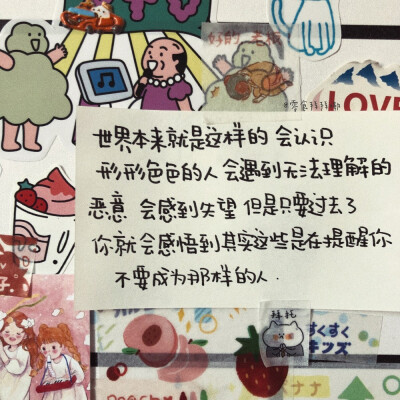 好的 老板
LOVE
世界本来就是这样的 会认识
形形色色的人 会遇到无法理解的
恶意 会感到失望 但是只要过去了
你就会感悟到其实这些是在提醒你
不要成为那样的人.
拜托
すくすく
キッズ